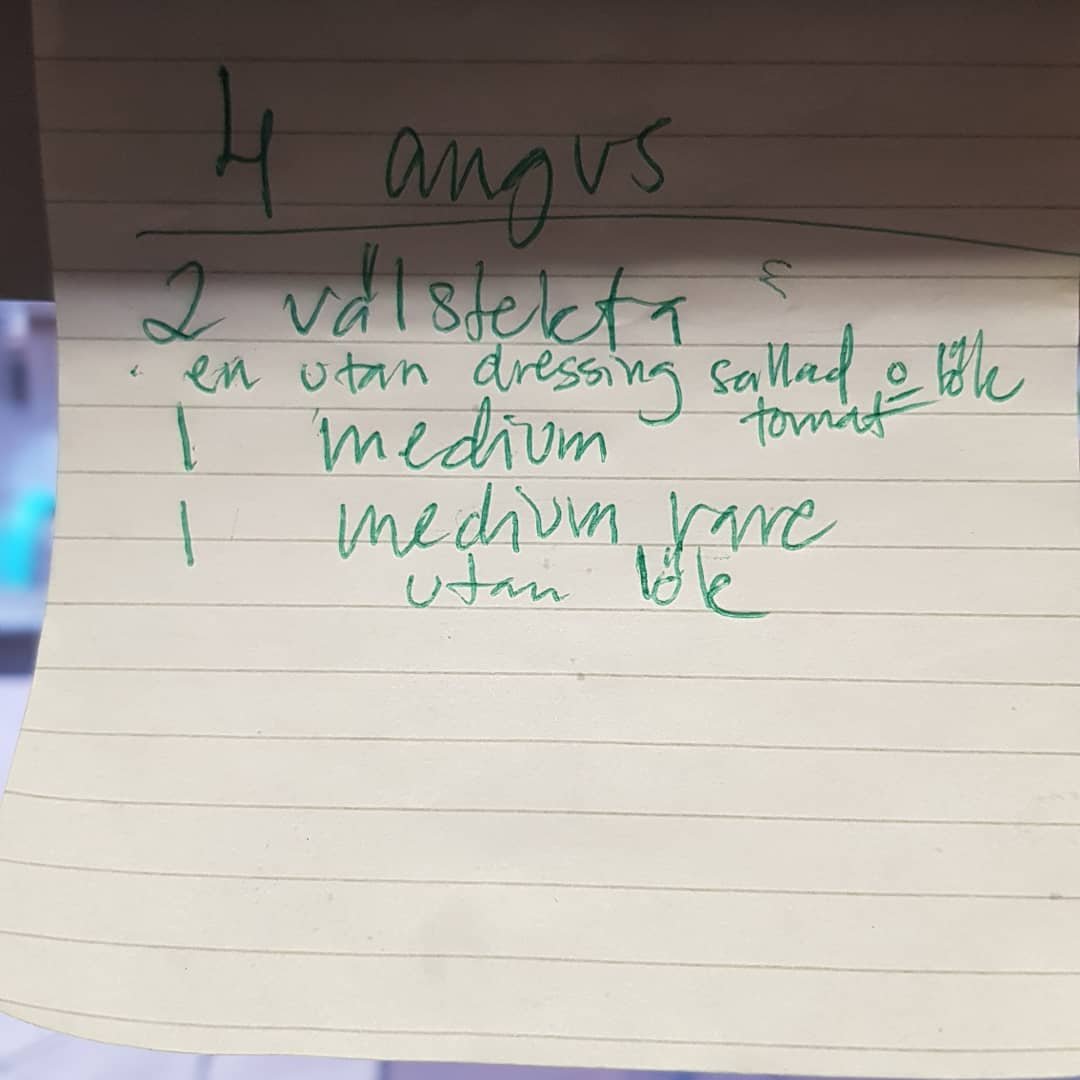 4 angus
2 välstekta
en utan dressing sallad o lök
tomat
1 medium
1 medium rare
utan lök